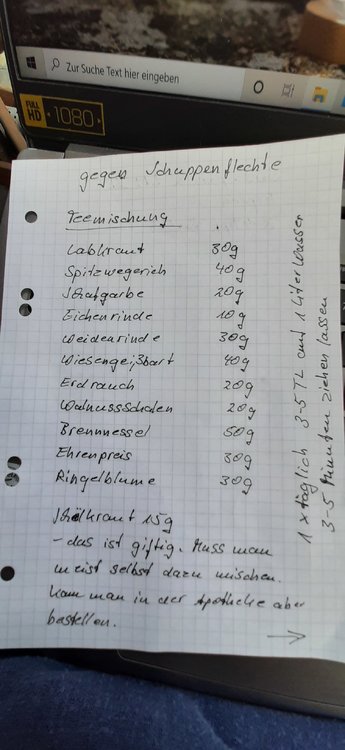 Zur Suche Text hier eingeben
FULL HD 1080
gegen Schuppenflechte
Teemischung
Labkraut 30g
Spitzwegerich 40g
Schafgarbe 20g
Eichenrinde 10g
Weidenrinde 30g
Wiesengeißbart 40g
Erdrauch 20g
Walnussschalen 20g
Brennnessel 50g
Ehrenpreis 30g
Ringelblume 30g
Schölkraut 15g
- das ist giftig. Muss man
meist selbst dazu mischen.
Kann man in der Apotheke aber
bestellen.
1 x täglich 3-5 TL auf 1 Liter Wasser
3-5 Minuten ziehen lassen